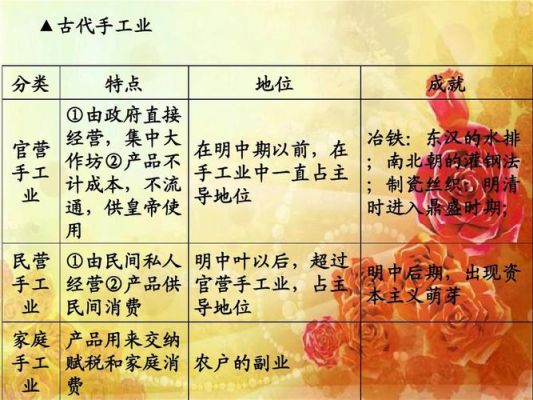 ▲古代手工业
分类 特点 地位 成就
官营
手工
业
①由政府直接
经营，集中大
作坊②产品不
计成本，不流
通，供皇帝使
用
在明中期以前，在
手工业中一直占主
导地位
冶铁：东汉的水排
；南北朝的灌钢法
；制瓷丝织：明清
时进入鼎盛时期；
民营
手工
业
①由民间私人
经营②产品供
民间消费
明中叶以后，超过
官营手工业，占主
导地位
明中后期，出现资
本主义萌芽
家庭
手工
业
产品用来交纳
赋税和家庭消
费
农户的副业